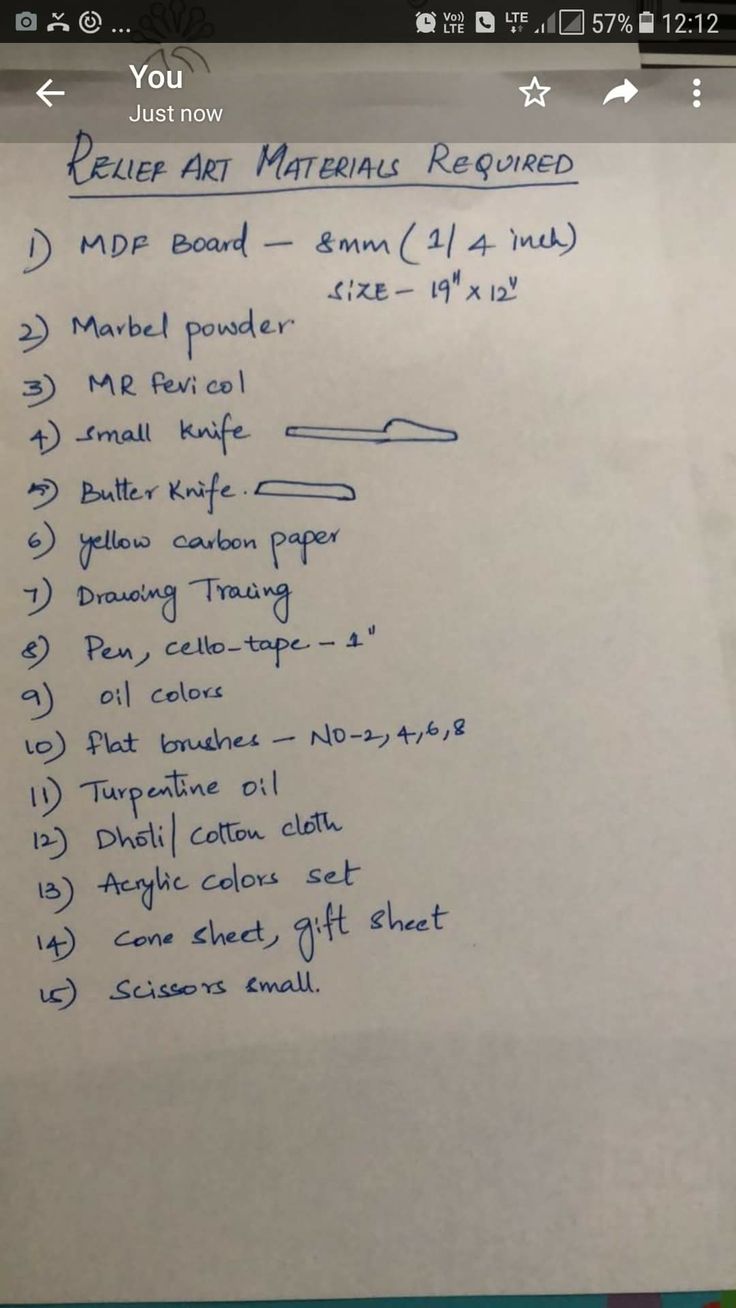 ... Vo)) LTE LTE 57% 12:12
You
Just now
RELIEF ART MATERIALS REQUIRED
1) MDF Board – 8mm ( 1/4 inch)
SIZE – 19" x 12"
2) Marbel powder
3) MR fevicol
4) small knife
5) Butter Knife.
6) yellow carbon paper
7) Drawing Tracing
8) Pen, cello-tape – 1"
9) oil colors
10) flat brushes – NO-2,4,6,8
11) Turpentine oil
12) Dhoti/ cotton cloth
13) Acrylic colors set
14) cone sheet, gift sheet
15) Scissors small.